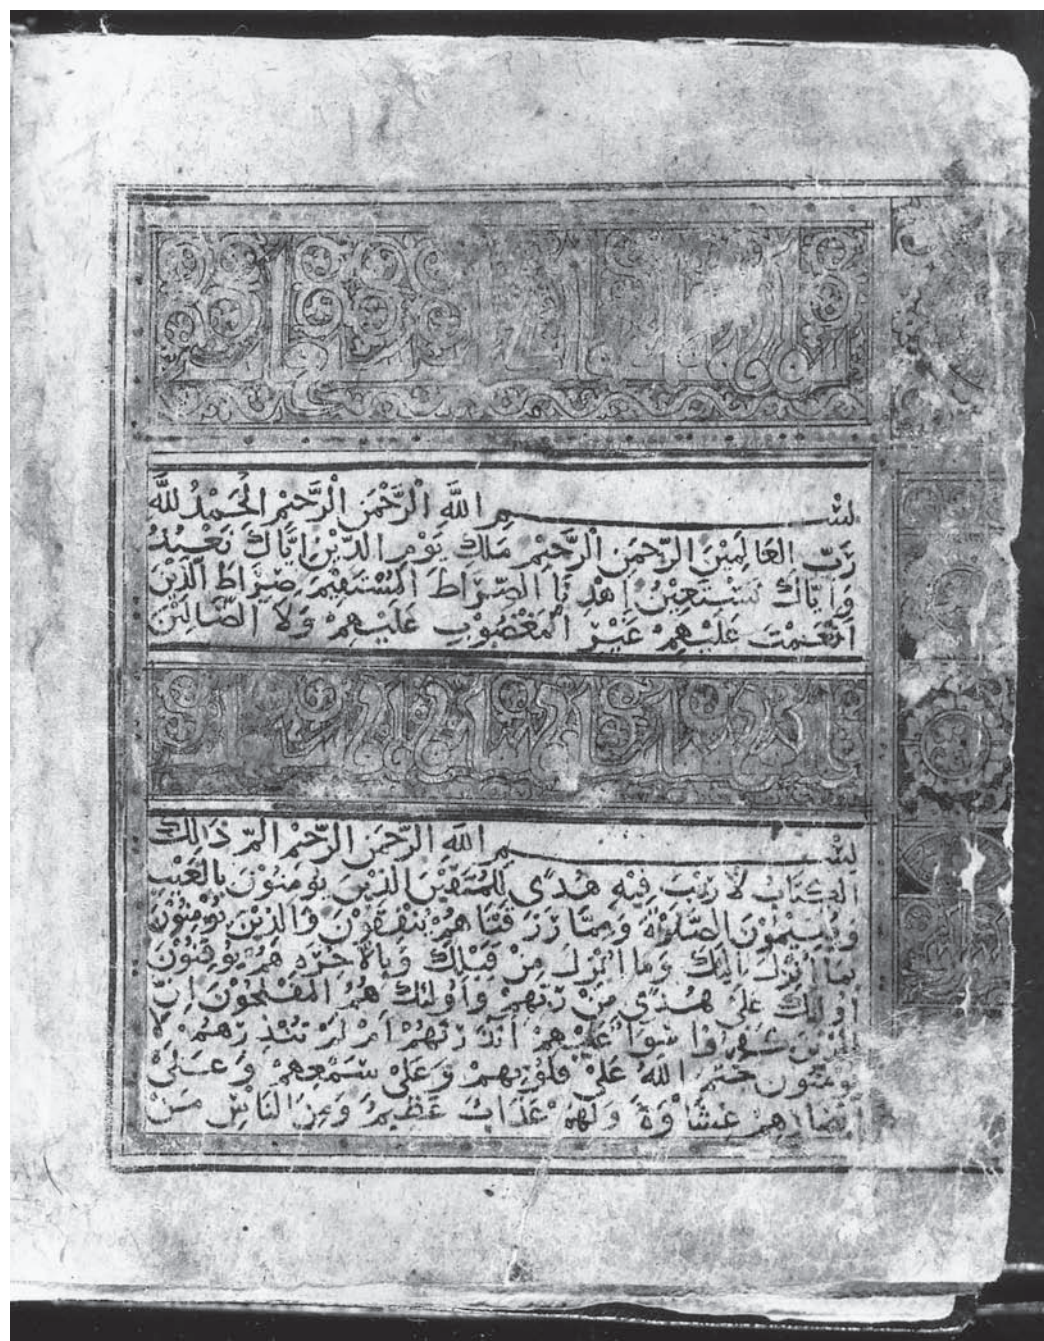 بسم الله الرَّحْمَن الرَّحِيْم الْحَمْدُ للَّه
رَبِّ العَالَمِيْنَ الرَّحمَن الرَّحِيْم مَلِكِ يَوْمِ الدِّيْنِ اِيَّاكَ نَعْبُدُ
وَاِيّاكَ نَسْتَعِيْنُ اِهْدِنَا الصِّرَاطَ المُسْتَقِيْمَ صِرَاطَ الَّذِيْنَ
اَنْعَمْتَ عَلَيْهِمْ غَيْرِ الْمَغْضُوْبِ عَلَيْهِمْ وَلاَ الضَّالِّيْنَ
بسم الله الرَّحْمَن الرَّحِيْم الّمّ ذَالِكَ
الكِتَابُ لاَ رَيْبَ فِيْهِ هُدًى لِلْمُتَّقِيْنَ الَّذِيْنَ يُؤمِنُوْنَ بِالْغَيْبِ
وَيُقِيْمُوْنَ الصَّلوٰةَ وَمِمَّا رَزَقْنَاهُمْ يُنْفِقُوْنَ وَالَّذِيْنَ يُؤْمِنُوْنَ
بِمَا اُنْزِلَ اِلَيْكَ وَمَا اُنْزِلَ مِنْ قَبْلِكَ وَبِالآخِرَةِ هُمْ يُوْقِنُوْنَ
اُولٰئِكَ عَلَى هُدًى مِنْ رَبِّهِمْ وَاُولٰئِكَ هُمُ المُفْلِحُوْنَ اِنَّ
الَّذِيْنَ كَفَرُوا سَوَاءٌ عَلَيْهِمْ ءَاَنْذَرْتَهُمْ اَمْ لَمْ تُنْذِرْهُمْ لاَ
يُؤمِنُوْنَ خَتَمَ اللهُ عَلَى قُلُوْبِهِمْ وَعَلَى سَمْعِهِمْ وَعَلَى
اَبْصَارِهِمْ غِشَاوَةٌ وَلَهُمْ عَذَابٌ عَظِيْمٌ وَمِنَ النَّاسِ مَنْ